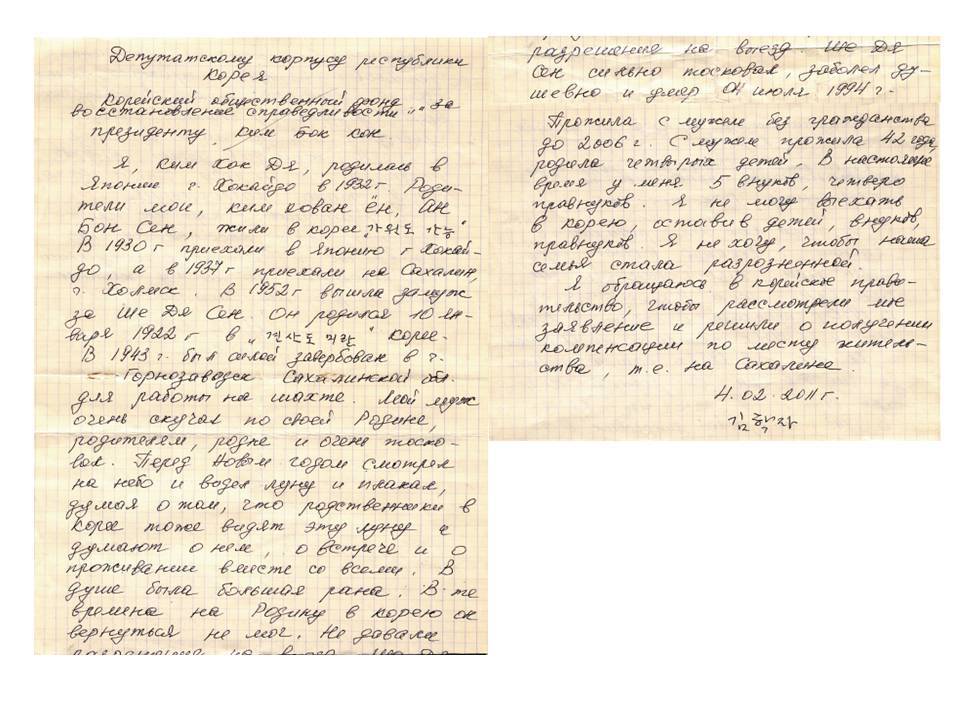 Депутатскому корпусу республики
Корея
Корейский общественный фонд
восстановление справедливости „" за
президенту ким бок кон
Я, ким хак Дя, родилась в
Японии г. Хокайдо в 1932 г. Роди-
тели мои, ким кован ён, Ан
Бон Сен, жили в корее 강원도 강능"
В 1930 г приехали в Японию г Хокай-
до, а в 1937 г приехали на Сахалин,
г. Холмск. В 1952 г вышла замуж
за Ше Дя Сен. Он родился 10 ян-
варя 1922 г в „ 경산도 " корее.
В 1943 г. был силой завербован в г.
Горнозаводск Сахалинской обл.
для работы на шахте. Мой муж
очень скучал по своей Родине,
родителем, родне и очень тоско-
вал. Перед Новым годом смотрел
на небо и водел луну и плакал,
думая о том, что родственники в
корее тоже видят эту луну и
думают о нем, о встрече и о
проживании вместе со всеми. В
душе была большая рана. В те
времена на Родину в корею он
вернуться не мог. Не давали
разрешения на выезд. Ше Дя
Сен сильно тосковал, заболел ду-
шевно и умер 04 июля 1994 г.
Прожила с мужем без гражданства
до 2006 г. С мужем прожила 42 года,
родила четверых детей. В настояще
время у меня 5 внуков, четверо
правнуков. Я не могу выехать
в корею, оставив детей, внуков,
правнуков. Я не хочу, чтобы наша
семья стала разрозненной.
Я обращаюсь в корейское прави-
тельство, чтобы рассмотрели мое
заявление и решили о получении
компенсации по месту житель-
ства, т.е. на Сахалине.
4. 02. 2011 г.
김학자